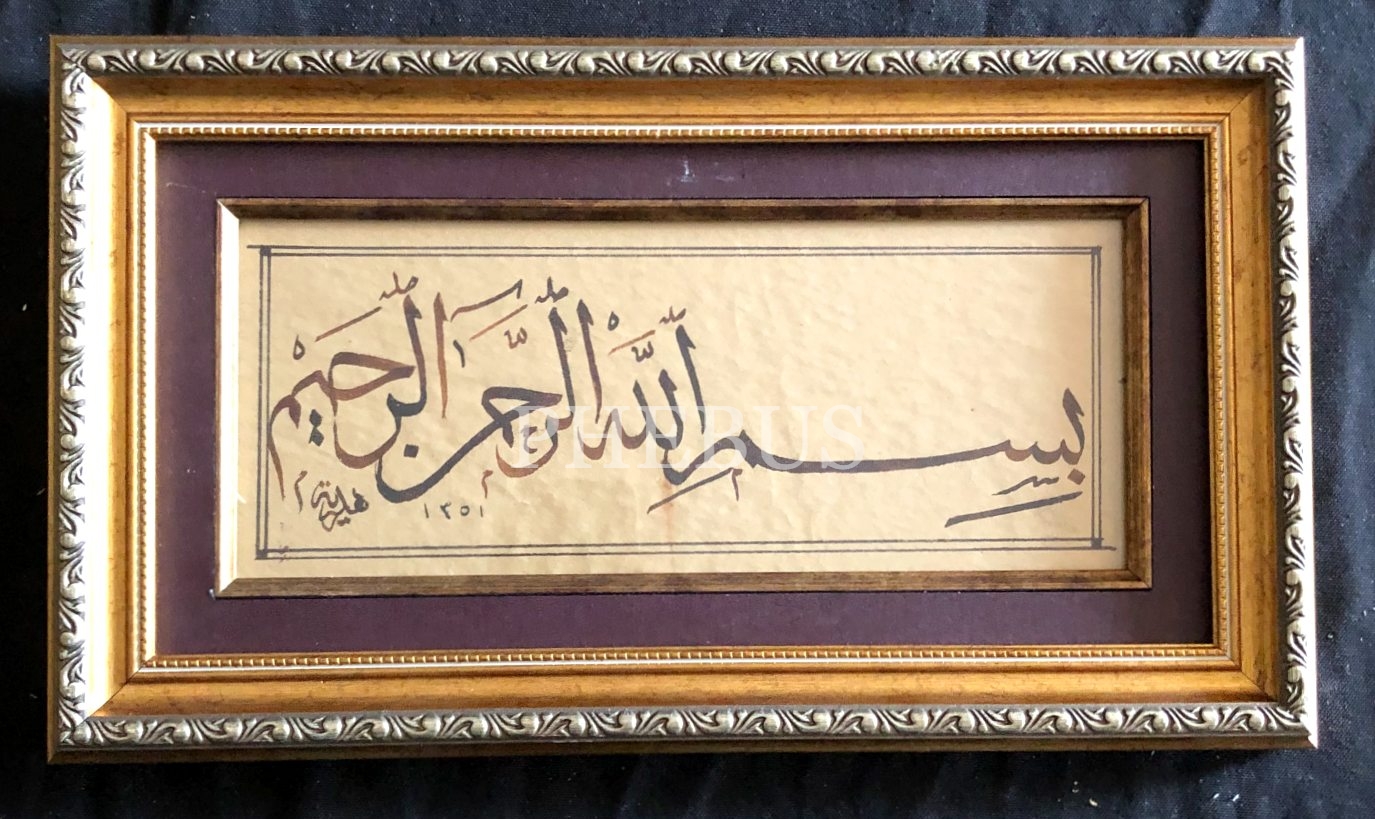 بِسْمِ اللّٰهِ الرَّحْمٰنِ الرَّحِيمِ
١٣٥١
PHEBUS